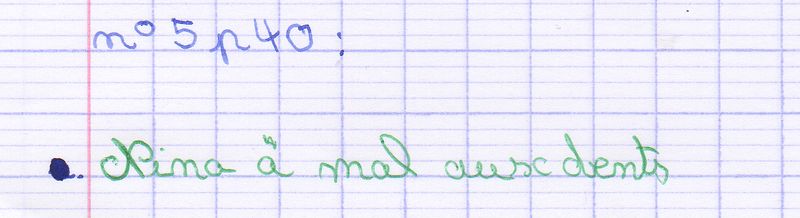 n° 5 p 40 :
Nina à mal aux dents